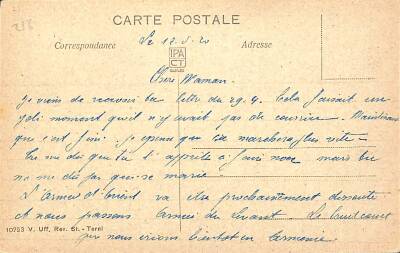 218
CARTE POSTALE
Correspondance
Adresse
IPA
CT
Le 17.5.20
Chère Maman.
Je viens de recevoir ta lettre du 29.4. Cela faisait un
joli moment qu'il n'y avait pas de courrier. Maintenant
que c'est fini. j'espère que ça marchera plus vite.
Tu me dis que tu t'apprête à faire noce mais tu
ne me dis pas qui se marie.
L'armée d'Orient va être prochainement dissoute
et nous passons Armée du Levant. Le bruit court
que nous irions bientôt en Armenie.
10753 V. Uff, Rev. St. - Terni